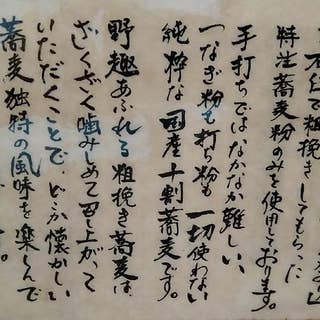 石臼で粗挽きしてもらった
特注蕎麦粉のみを使用しております。
手打ちではなかなか難しい、
つなぎ粉も打ち粉も一切使わない
純粋な国産十割蕎麦です。
野趣あふれる粗挽き蕎麦は、
ざくざく噛みしめて召し上がって
いただくことで、どこか懐かしい
蕎麦独特の風味を楽しんで